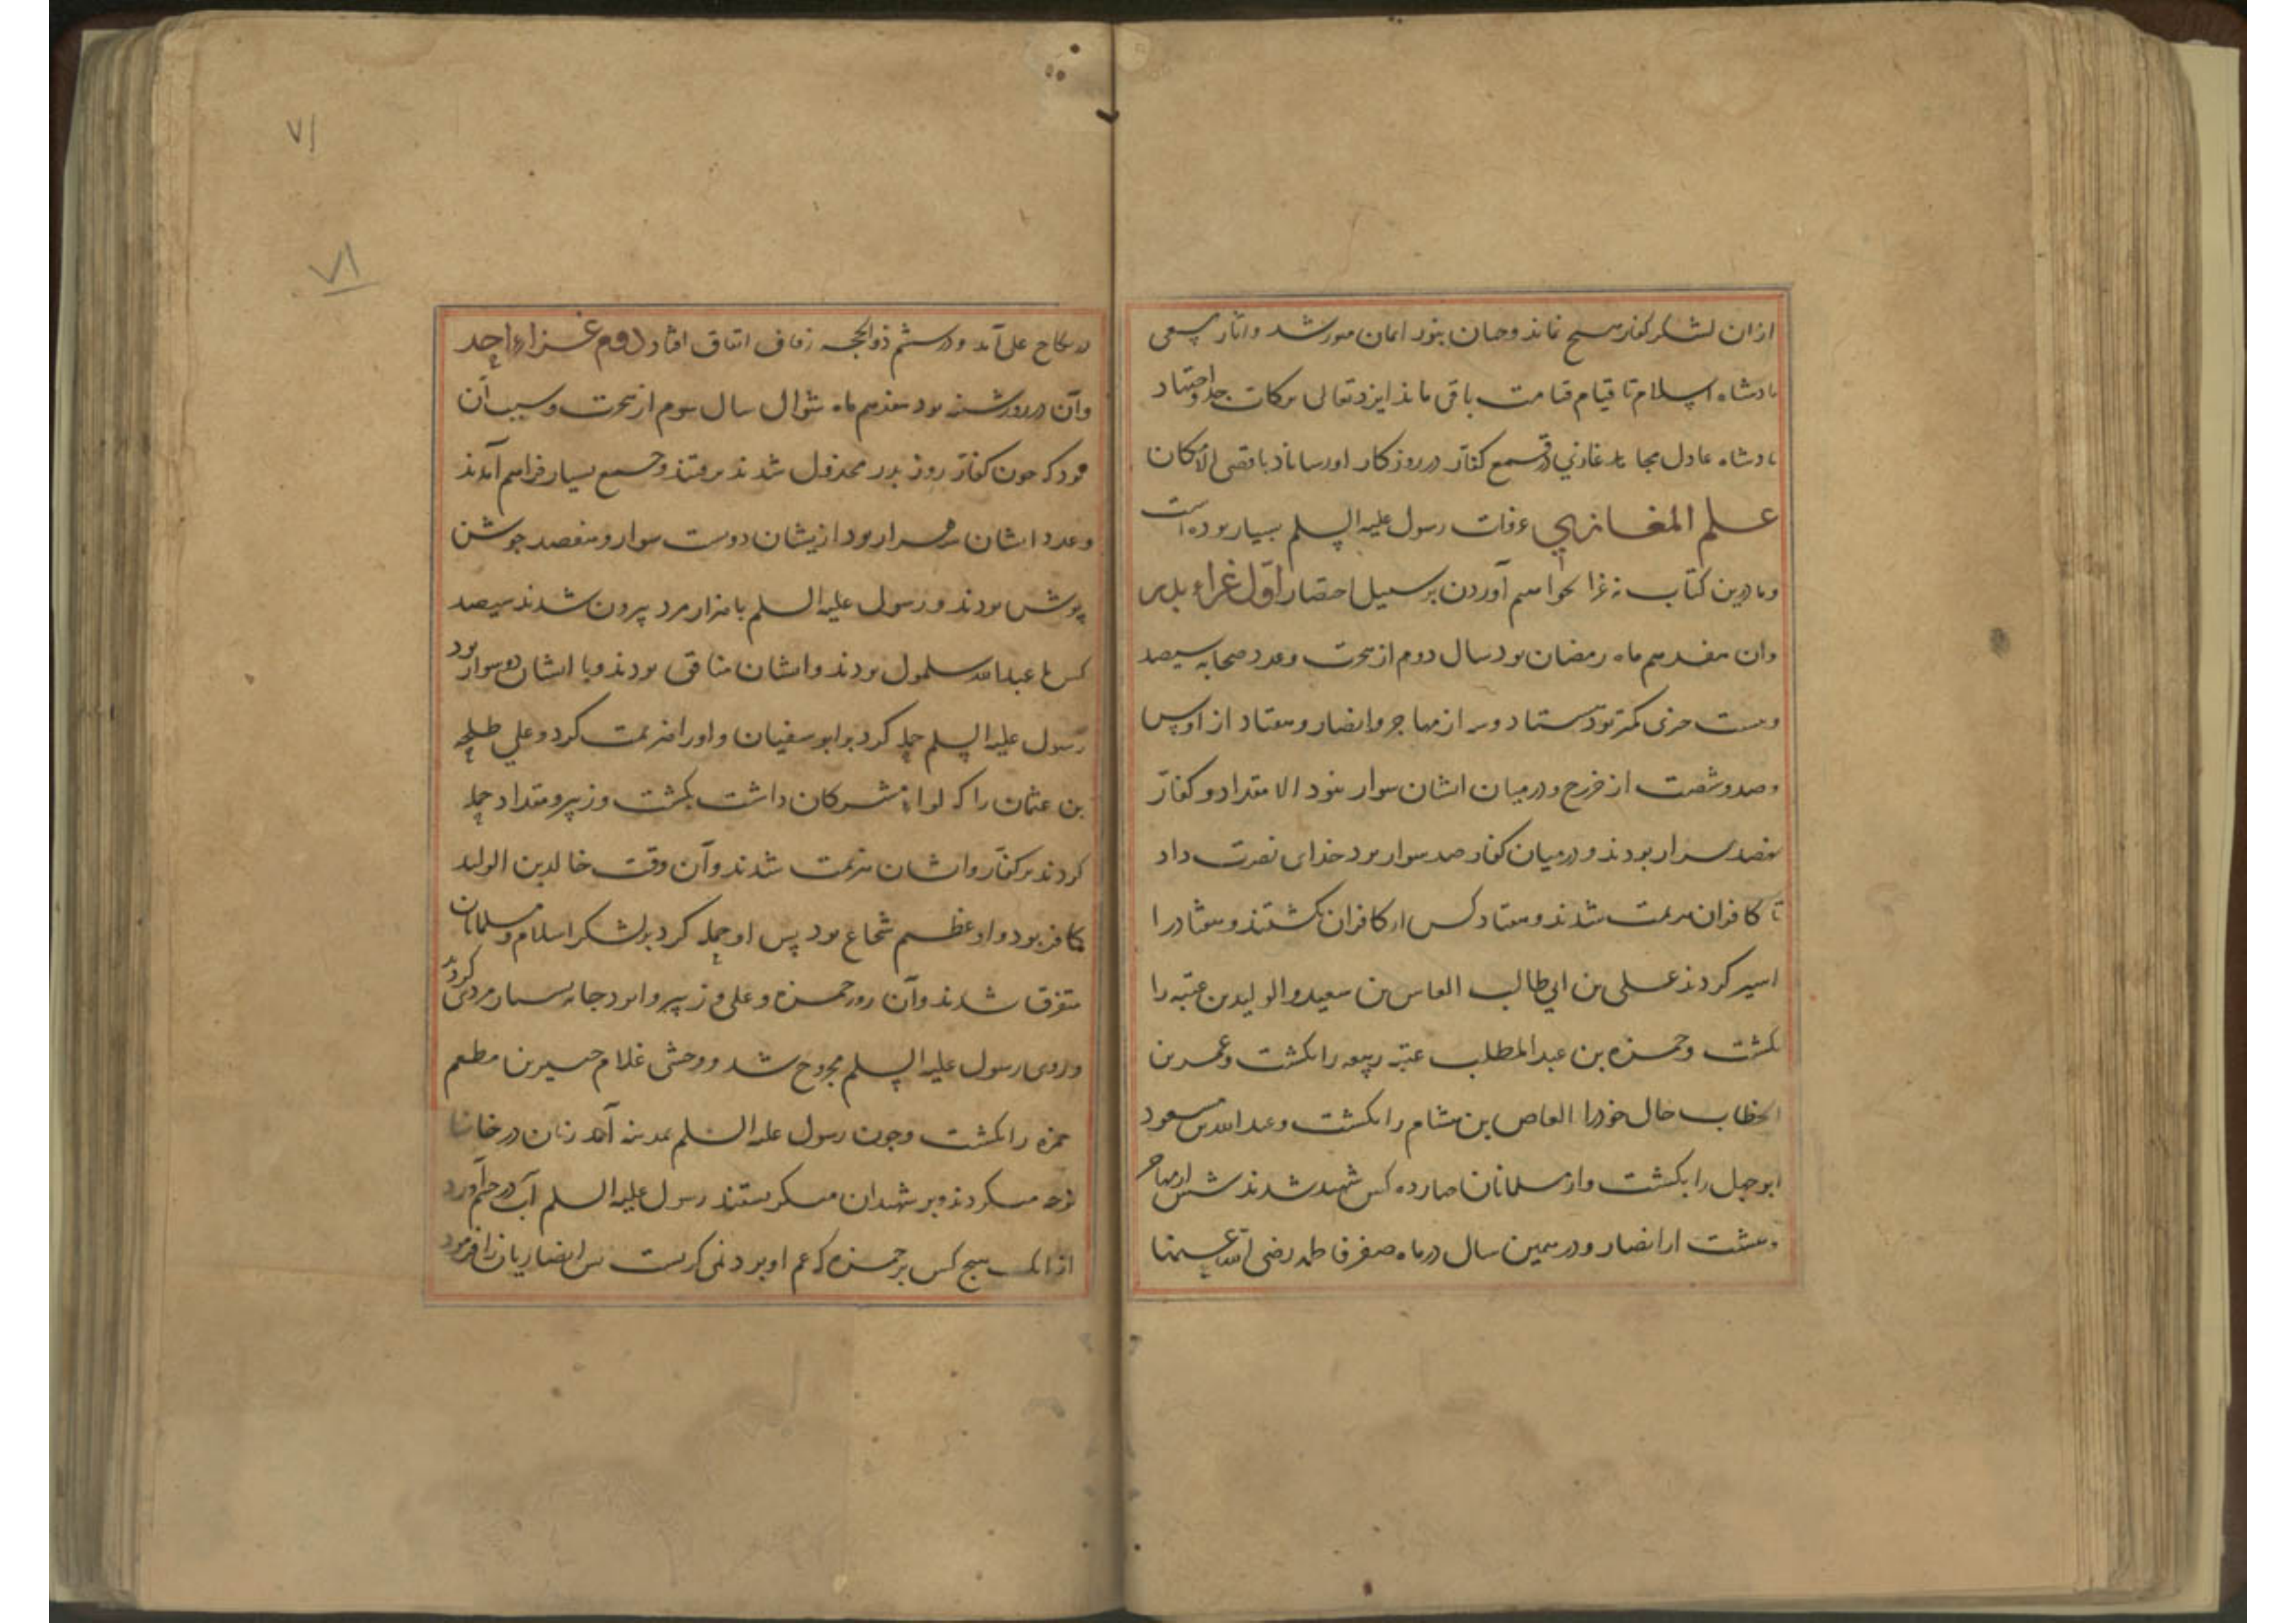 ازان لشکر کفار هیچ نماند و جهان بنور ایمان منور شد و آثار سعی
بادشاه اسلام تا قیام قیامت باقی ماند ایزد تعالی برکات جد و اجتهاد
بادشاه عادل مجاهد غازی در قمع کفار در روزکار او رساناد باقصی الامکان
علم المغازی غزوات رسول علیه السلم بسیار بوده است
و ما درین کتاب نه غزا بخواهیم آوردن بر سبیل اختصار اول غزاء بدر
وان هفدهم ماه رمضان بود سال دوم از هجرت وعدد صحابه سیصد
وبیست جزی کمتر بود هشتاد وسه از مهاجر وانصار وهفتاد از اوس
وصد وشصت از خزرج ودرمیان ایشان سوار نبود الا مقداد وکفار
نهصد سوار بودند ودرمیان کفار صد سوار بود خدای نصرت داد
تا کافران هزیمت شدند وهفتاد کس از کافران بکشتند وهفتاد را
اسیر کردند علی بن ابی طالب العاص بن سعید والولید بن عتبه را
بکشت وحمزه بن عبد المطلب عتبه ربیعه را بکشت وعمر بن
الخطاب خال خود را العاص بن هشام را بکشت وعبد الله بن مسعود
ابوجهل را بکشت واز مسلمانان چهارده کس شهید شدند شش از مهاجر
وهشت از انصار ودر همین سال در ماه صفر فاطمه رضی الله عنها
در نکاح علی آمد ودر ششم ذو الحجه زفاف اتفاق افتاد دوم غزاء احد
وآن در روز شنبه بود هفدهم ماه شوال سال سوم از هجرت وسبب آن
بود که چون کفار روز بدر مخذول شدند برفتند وجمع بسیار فراهم آمدند
وعدد ایشان سه هزار بود ازیشان دویست سوار وهفصد جوشن
پوش بودند ورسول علیه السلم با هزار مرد بیرون شدند سیصد
کس با عبد الله سلول بودند وایشان منافق بودند وبا ایشان دو سوار بود
رسول علیه السلم حمله کرد بر ابو سفیان واورا هزیمت کرد وعلی طلحه
بن عثمان را که لواء مشرکان داشت بکشت وزبیر ومقداد حمله
کردند بر کفار وایشان هزیمت شدند وآن وقت خالد بن الولید
کافر بود واو عظیم شجاع بود پس او حمله کرد بر لشکر اسلام ومسلمانان
متفرق شدند وآن روز حمزه وعلی وزبیر وابو دجانه بسیار مردی کردند
وروی رسول علیه السلم مجروح شد ووحشی غلام جبیر بن مطعم
حمزه را بکشت وچون رسول علیه السلم بمدینه آمد زنان در خانها
نوحه میکردند وبر شهیدان میکریستند رسول علیه السلم آب در چشم آورد
از انک هیچ کس بر حمزه که عم او بود نمی کریست پس انصاریان را فرمود